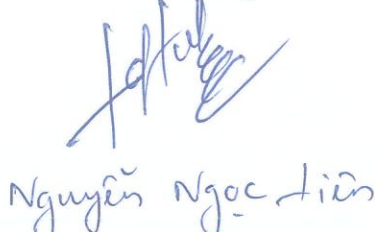 Nguyễn Ngọc Liên